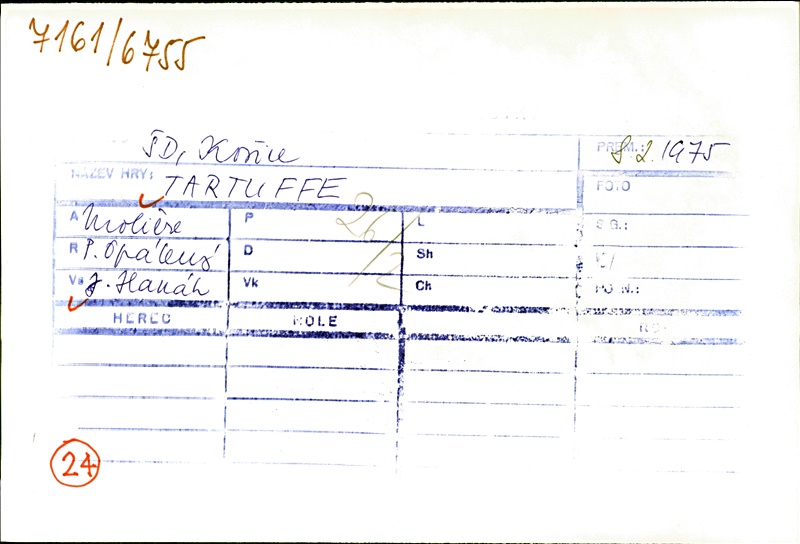 7161/6755
ŠD, Košice
PREM.: 8.2.1975
NÁZEV HRY: TARTUFFE
FOTO
A Molière P L SG.:
R P. Opálený D Sh
Vs J. Hanák Vk Ch
26/2
HEREC ROLE
24